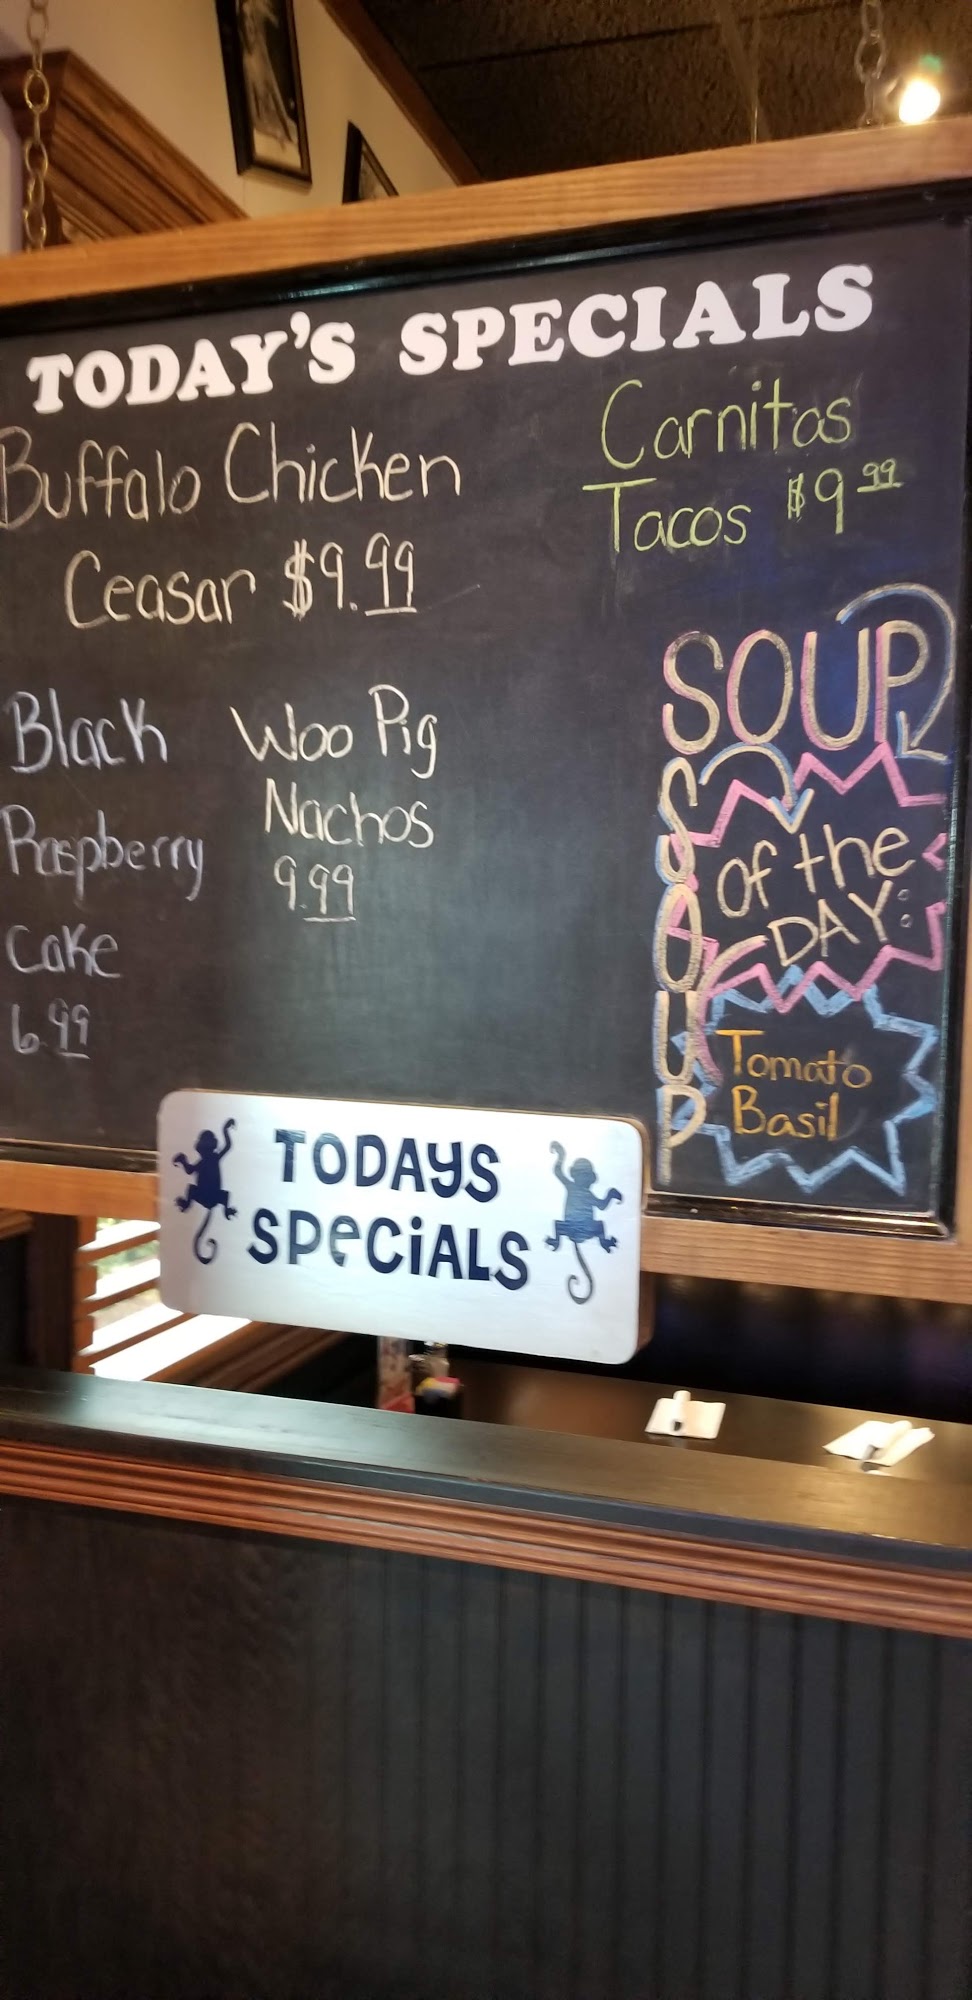 TODAY'S SPECIALS
Buffalo Chicken
Ceasar $9.99
Carnitas
Tacos $9.99
Black
Raspberry
Cake
6.99
Woo Pig
Nachos
9.99
SOUP
SOUP
of the
DAY:
Tomato
Basil
TODAYS
SPeCiALS